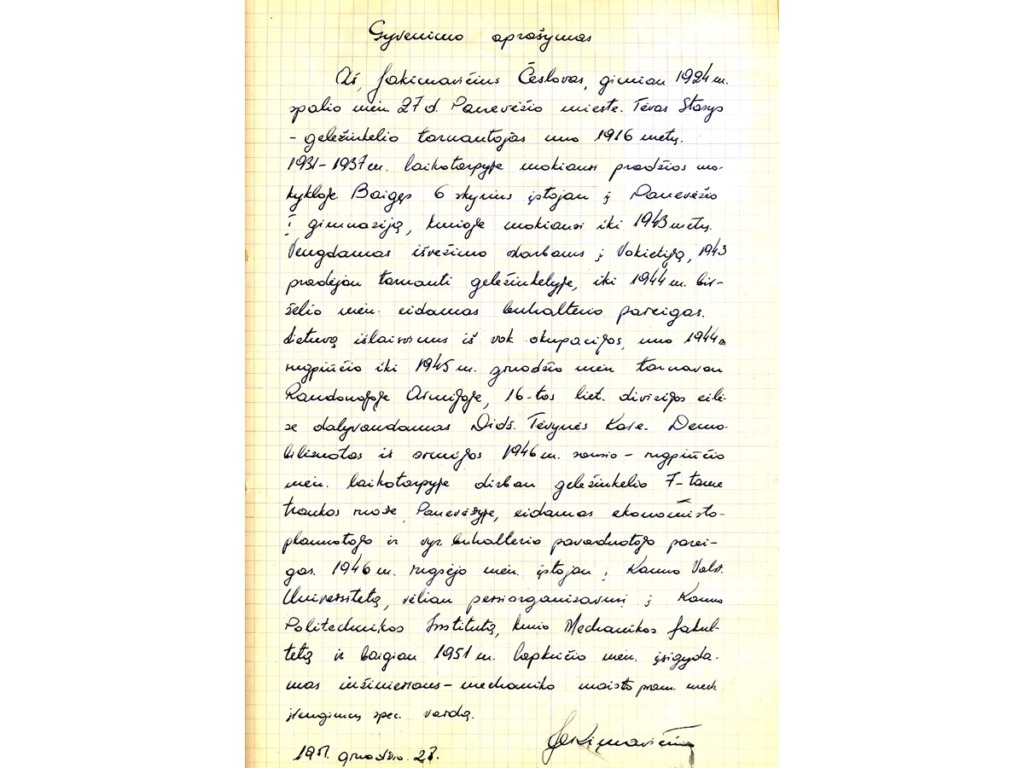 Gyvenimo aprašymas
Aš, Jakimavičius Česlovas, gimiau 1924 m.
spalio mėn 27 d. Panevėžio mieste. Tėvas Stasys
- geležinkelio tarnautojas nuo 1916 metų.
1931-1937 m. laikotarpyje mokiausi pradžios mo-
kykloje. Baigęs 6 skyrius įstojau į Panevėžio
I gimnaziją, kurioje mokiausi iki 1943 metų.
Vengdamas išvežimo darbams į Vokietiją, 1943
pradėjau tarnauti geležinkelyje, iki 1944 m. bir-
želio mėn. eidamas buhalterio pareigas.
Lietuvą išlaisvinus iš vok okupacijos, nuo 1944 m
rugpiučio iki 1945 m. gruodžio mėn tarnavau
Raudonojoje Armijoje, 16-tos liet. divizijos eilė-
se dalyvaudamas Didž. Tėvynės Kare. Demo-
bilizuotas iš armijos 1946 m. sausio - rugpiučio
mėn. laikotarpyje dirbau geležinkelio 7-tame
traukos ruože Panevėžyje, eidamas ekonomisto-
planuotojo ir vyr. buhalterio pavaduotojo parei-
gas. 1946 m. rugsėjo mėn. įstojau į Kauno Valst.
Universitetą, vėliau persiorganizavusį į Kauno
Politechnikos Institutą, kurio Mechanikos fakul-
tetą ir baigiau 1951 m. lapkričio mėn. įsigyda-
mas inžinieriaus-mechaniko maisto pram. mech
įrengimų spec. vardą.
Jakimavičius
1951. gruodžio. 27.